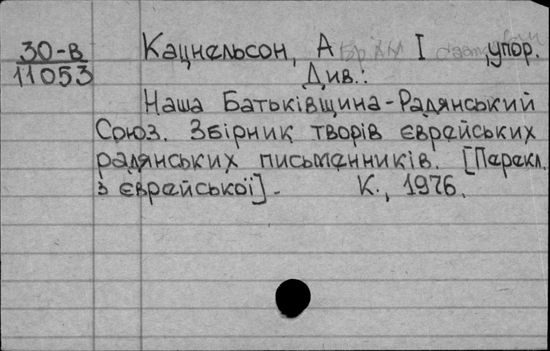 30-В
11053
Кацнельсон, А І , упор.
Див.:
Наша Батьківщина-Радянський
Союз. Збірник творів єврейських
радянських письменників. [Перекл.
з єврейської].- К., 1976.